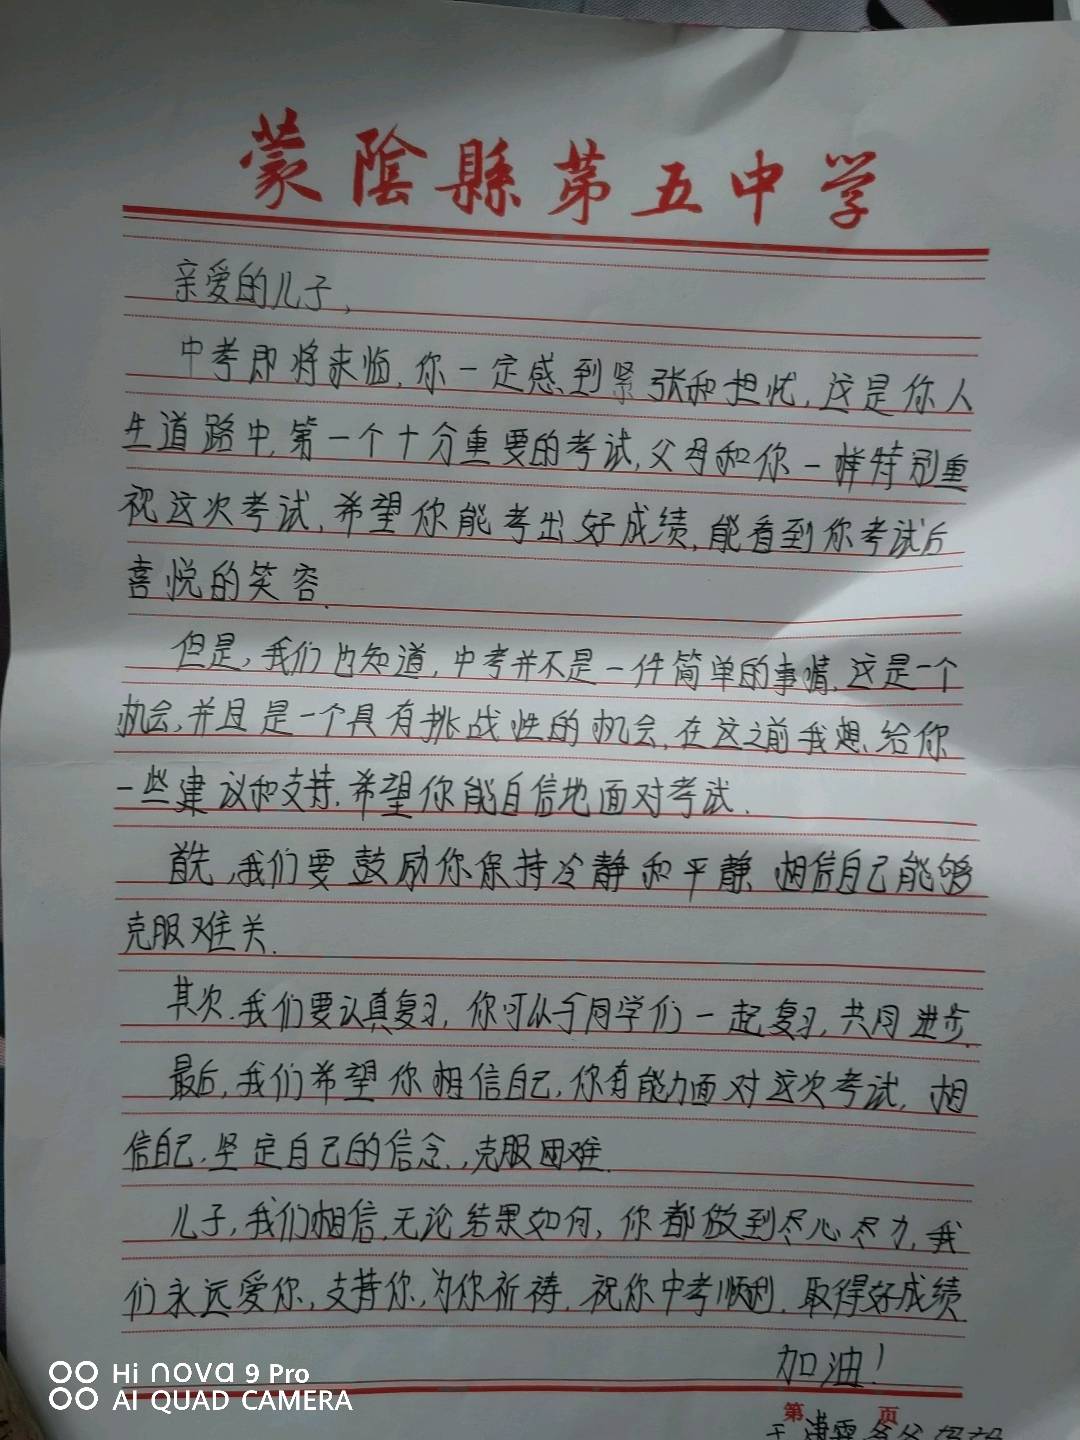 蒙陰縣第五中学
亲爱的儿子,
中考即将来临,你一定感到紧张和担忧,这是你人
生道路中,第一个十分重要的考试,父母和你一样特别重
视这次考试,希望你能考出好成绩,能看到你考试后
喜悦的笑容.
但是,我们也知道,中考并不是一件简单的事情,这是一个
机会,并且是一个具有挑战性的机会,在这之前我想给你
一些建议和支持,希望你能自信地面对考试.
首先,我们要鼓励你保持冷静和平静,相信自己能够
克服难关.
其次.我们要认真复习,你可以于同学们一起复习,共同进步.
最后,我们希望你相信自己,你有能力面对这次考试,相
信自己.坚定自己的信念,克服困难.
儿子,我们相信,无论结果如何,你都做到尽心尽力,我
们永远爱你,支持你,为你祈祷.祝你中考顺利,取得好成绩
加油!
第 页
Hi nova 9 Pro
AI QUAD CAMERA